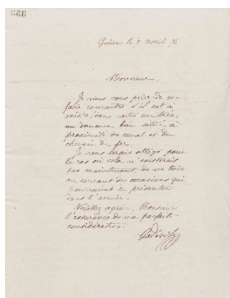 le 7 Avril 76
Monsieur,
Je viens vous prier de me
faire connaître s'il est à
vendre, dans votre
bien située à
proximité du canal et du
chemin de fer.
Je vous serais obligé pour
le cas où cela n'existerait
pas maintenant de me tenir
au courant des occasions qui
pourraient se présenter
dans l'année.
Veuillez agréer, Monsieur
l'assurance de ma parfaite
considération.